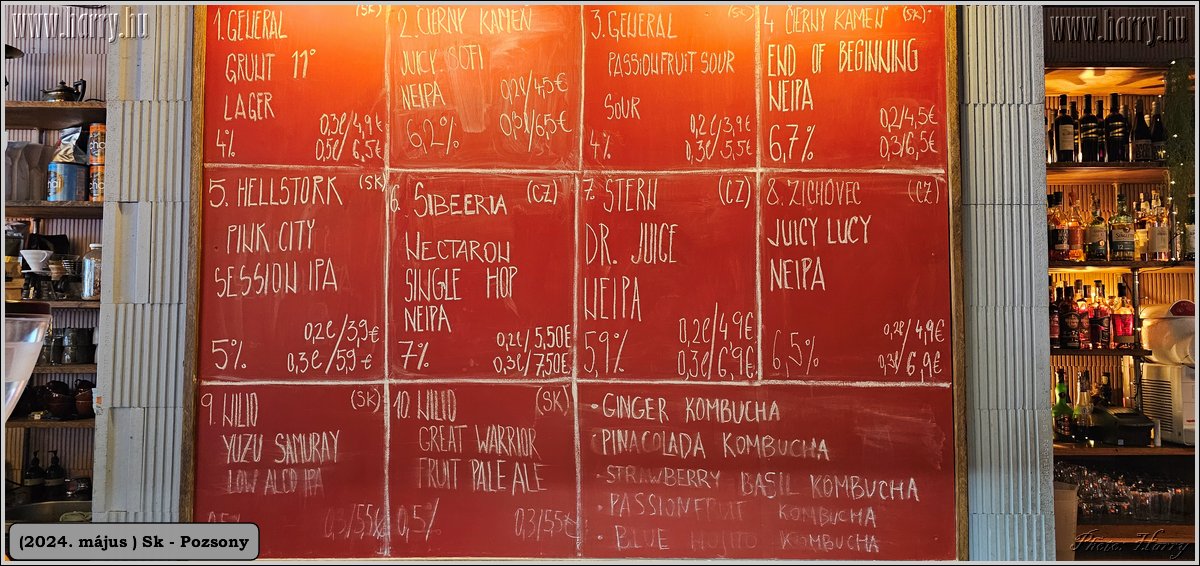 www.horry.hu
www.horry.hu
1. GENERAL (SK)
GRUNT 11°
LAGER
4% 0,3l/4,9€
0,5l/6,5€
2. ČIERNY KAMEŇ
JUICY SOFI
NEIPA
6,2% 0,2l/4,5€
0,3l/6,5€
3. GENERAL (SK)
PASSIONFRUIT SOUR
SOUR
4% 0,2l/3,9€
0,3l/5,5€
4 ČIERNY KAMEŇ (SK)
END OF BEGINNING
NEIPA
6,7% 0,2/4,5€
0,3/6,5€
5. HELLSTORK (SK)
PINK CITY
SESSION IPA
5% 0,2l/3,9€
0,3l/5,9€
6. SIBEERIA (CZ)
NECTARON
SINGLE HOP
NEIPA
7% 0,2l/5,50€
0,3l/7,50€
7. ŠTERN (CZ)
DR. JUICE
NEIPA
5,9% 0,2l/4,9€
0,3l/6,9€
8. ZICHOVEC (CZ)
JUICY LUCY
NEIPA
6,5% 0,2l/4,9€
0,3l/6,9€
9. WILD (SK)
YUZU SAMURAY
LOW ALCO IPA
0,5% 0,3/5,5€
10. WILD (SK)
GREAT WARRIOR
FRUIT PALE ALE
0,5% 0,3/5,5€
• GINGER KOMBUCHA
• PINACOLADA KOMBUCHA
• STRAWBERRY BASIL KOMBUCHA
• PASSIONFRUIT KOMBUCHA
• BLUE MOJITO KOMBUCHA
(2024. május ) Sk - Pozsony
Photo: Horry